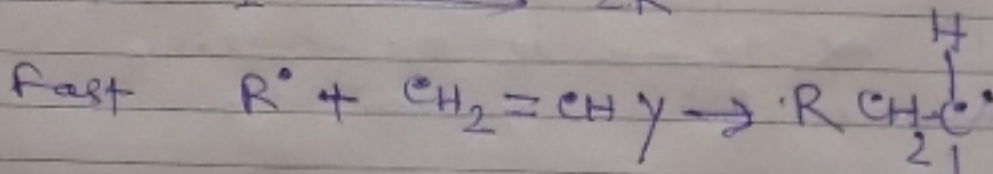 H
Fast R• + CH2 = CHY → ·R CH2-C•